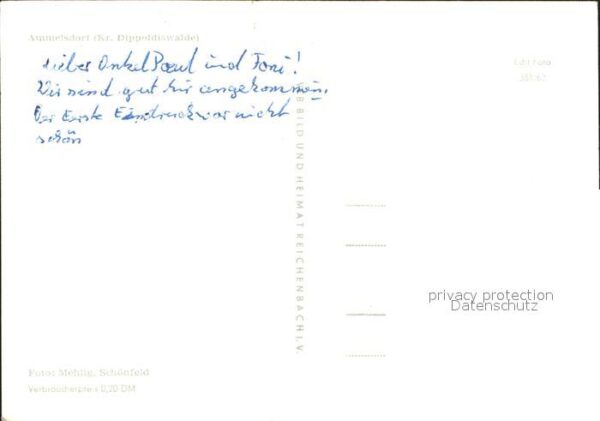 Ammelsdorf (Kr. Dippoldiswalde)
Lieber Onkel Paul und Toni!
Wir sind gut hir angekommen.
Der Erste Eindruck war nicht
schön
Foto
VEB BILD UND HEIMAT REICHENBACH I. V.
privacy protection
Datenschutz
Foto: Mehlig, Schönfeld
Verbraucherpreis 0,20 DM